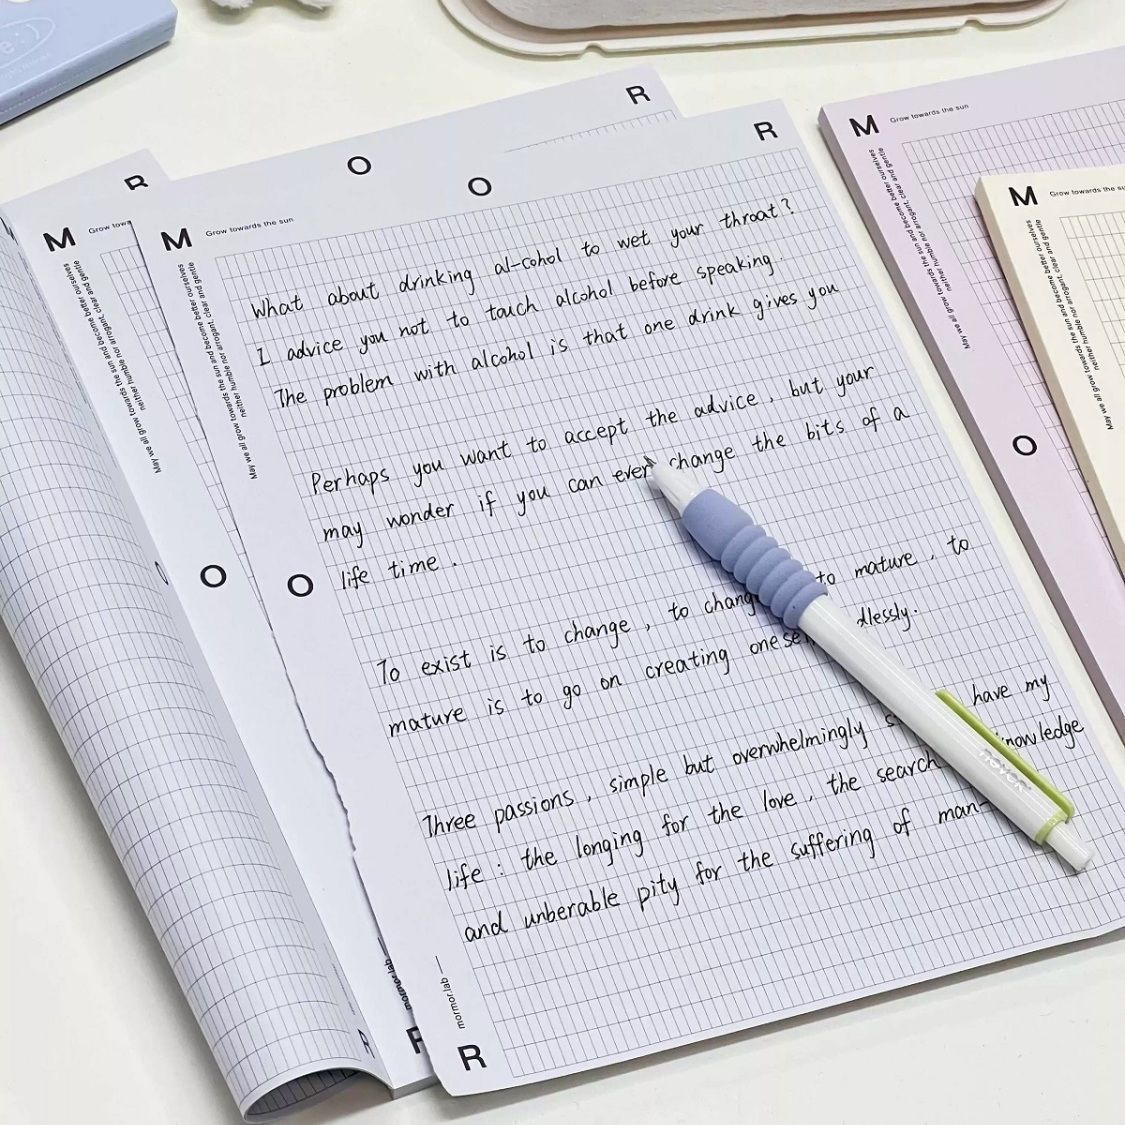 R
O
R
R
O
M
Grow towards the sun
M
Grow towards the
M
Grow
M
Grow towards the sun
May we all grow towards the sun and become better ourselves
neither humble nor arrogant, clear and gentle
May we all grow towards the sun and become better ourselves
neither humble nor arrogant, clear and gentle
May we all grow towards the sun and become better ourselves
neither humble nor arrogant, clear and gentle
May we all grow towards the sun and become better ourselves
neither humble nor arrogant, clear and gentle
What about drinking al-cohol to wet your throat?
I advice you not to touch alcohol before speaking.
The problem with alcohol is that one drink gives you
Perhaps you want to accept the advice, but your
may wonder if you can ever change the bits of a
life time.
To exist is to change, to chang to mature, to
mature is to go on creating onese dlessly.
Three passions, simple but overwhelmingly s have my
life: the longing for the love, the search knowledge
and unberable pity for the suffering of man-
O
O
O
mormor.lab
mormor.lab
R
R
R